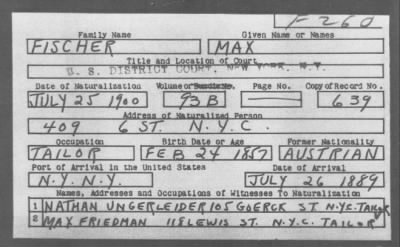 F 260
Family Name Given Name or Names
FISCHER MAX
Title and Location of Court
U. S. DISTRICT COURT, NEW YORK, N.Y.
Date of Naturalization Volume or Bundle No. Page No. Copy of Record No.
JULY 25 1900 93B 639
Address of Naturalized Person
409 6 ST. N.Y.C.
Occupation Birth Date or Age Former Nationality
TAILOR FEB 24 1857 AUSTRIAN
Port of Arrival in the United States Date of Arrival
N.Y. N.Y. JULY 26 1889
Names, Addresses and Occupations of Witnesses To Naturalization
1 NATHAN UNGERLEIDER 105 GOERCK ST N.Y.C. TAILOR
2 MAX FRIEDMAN 118 LEWIS ST. N.Y.C. TAILOR